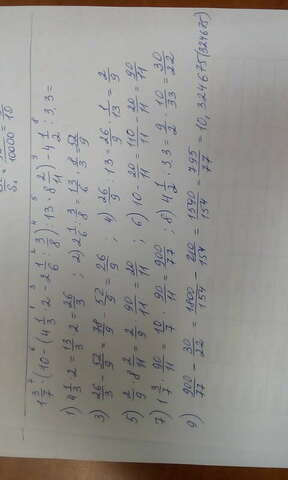 1 3/7 · (10 - (4 1/3 · 2 - 2 1/6 : 3/8) : 13 · 8 2/11) - 4 1/2 : 3,3 =
1) 4 1/3 · 2 = 13/3 · 2 = 26/3 ; 2) 2 1/6 : 3/8 = 13/6 · 8/3 = 52/9
3) 26/3 - 52/9 = 78/9 - 52/9 = 26/9 ; 4) 26/9 : 13 = 26/9 · 1/13 = 2/9
5) 2/9 · 8 2/11 = 2/9 · 90/11 = 20/11 ; 6) 10 - 20/11 = 110/11 - 20/11 = 90/11
7) 1 3/7 · 90/11 = 10/7 · 90/11 = 900/77 ; 8) 4 1/2 : 3,3 = 9/2 · 10/33 = 30/22
9) 900/77 - 30/22 = 1800/154 - 210/154 = 1590/154 = 795/77 = 10,324675(324675)